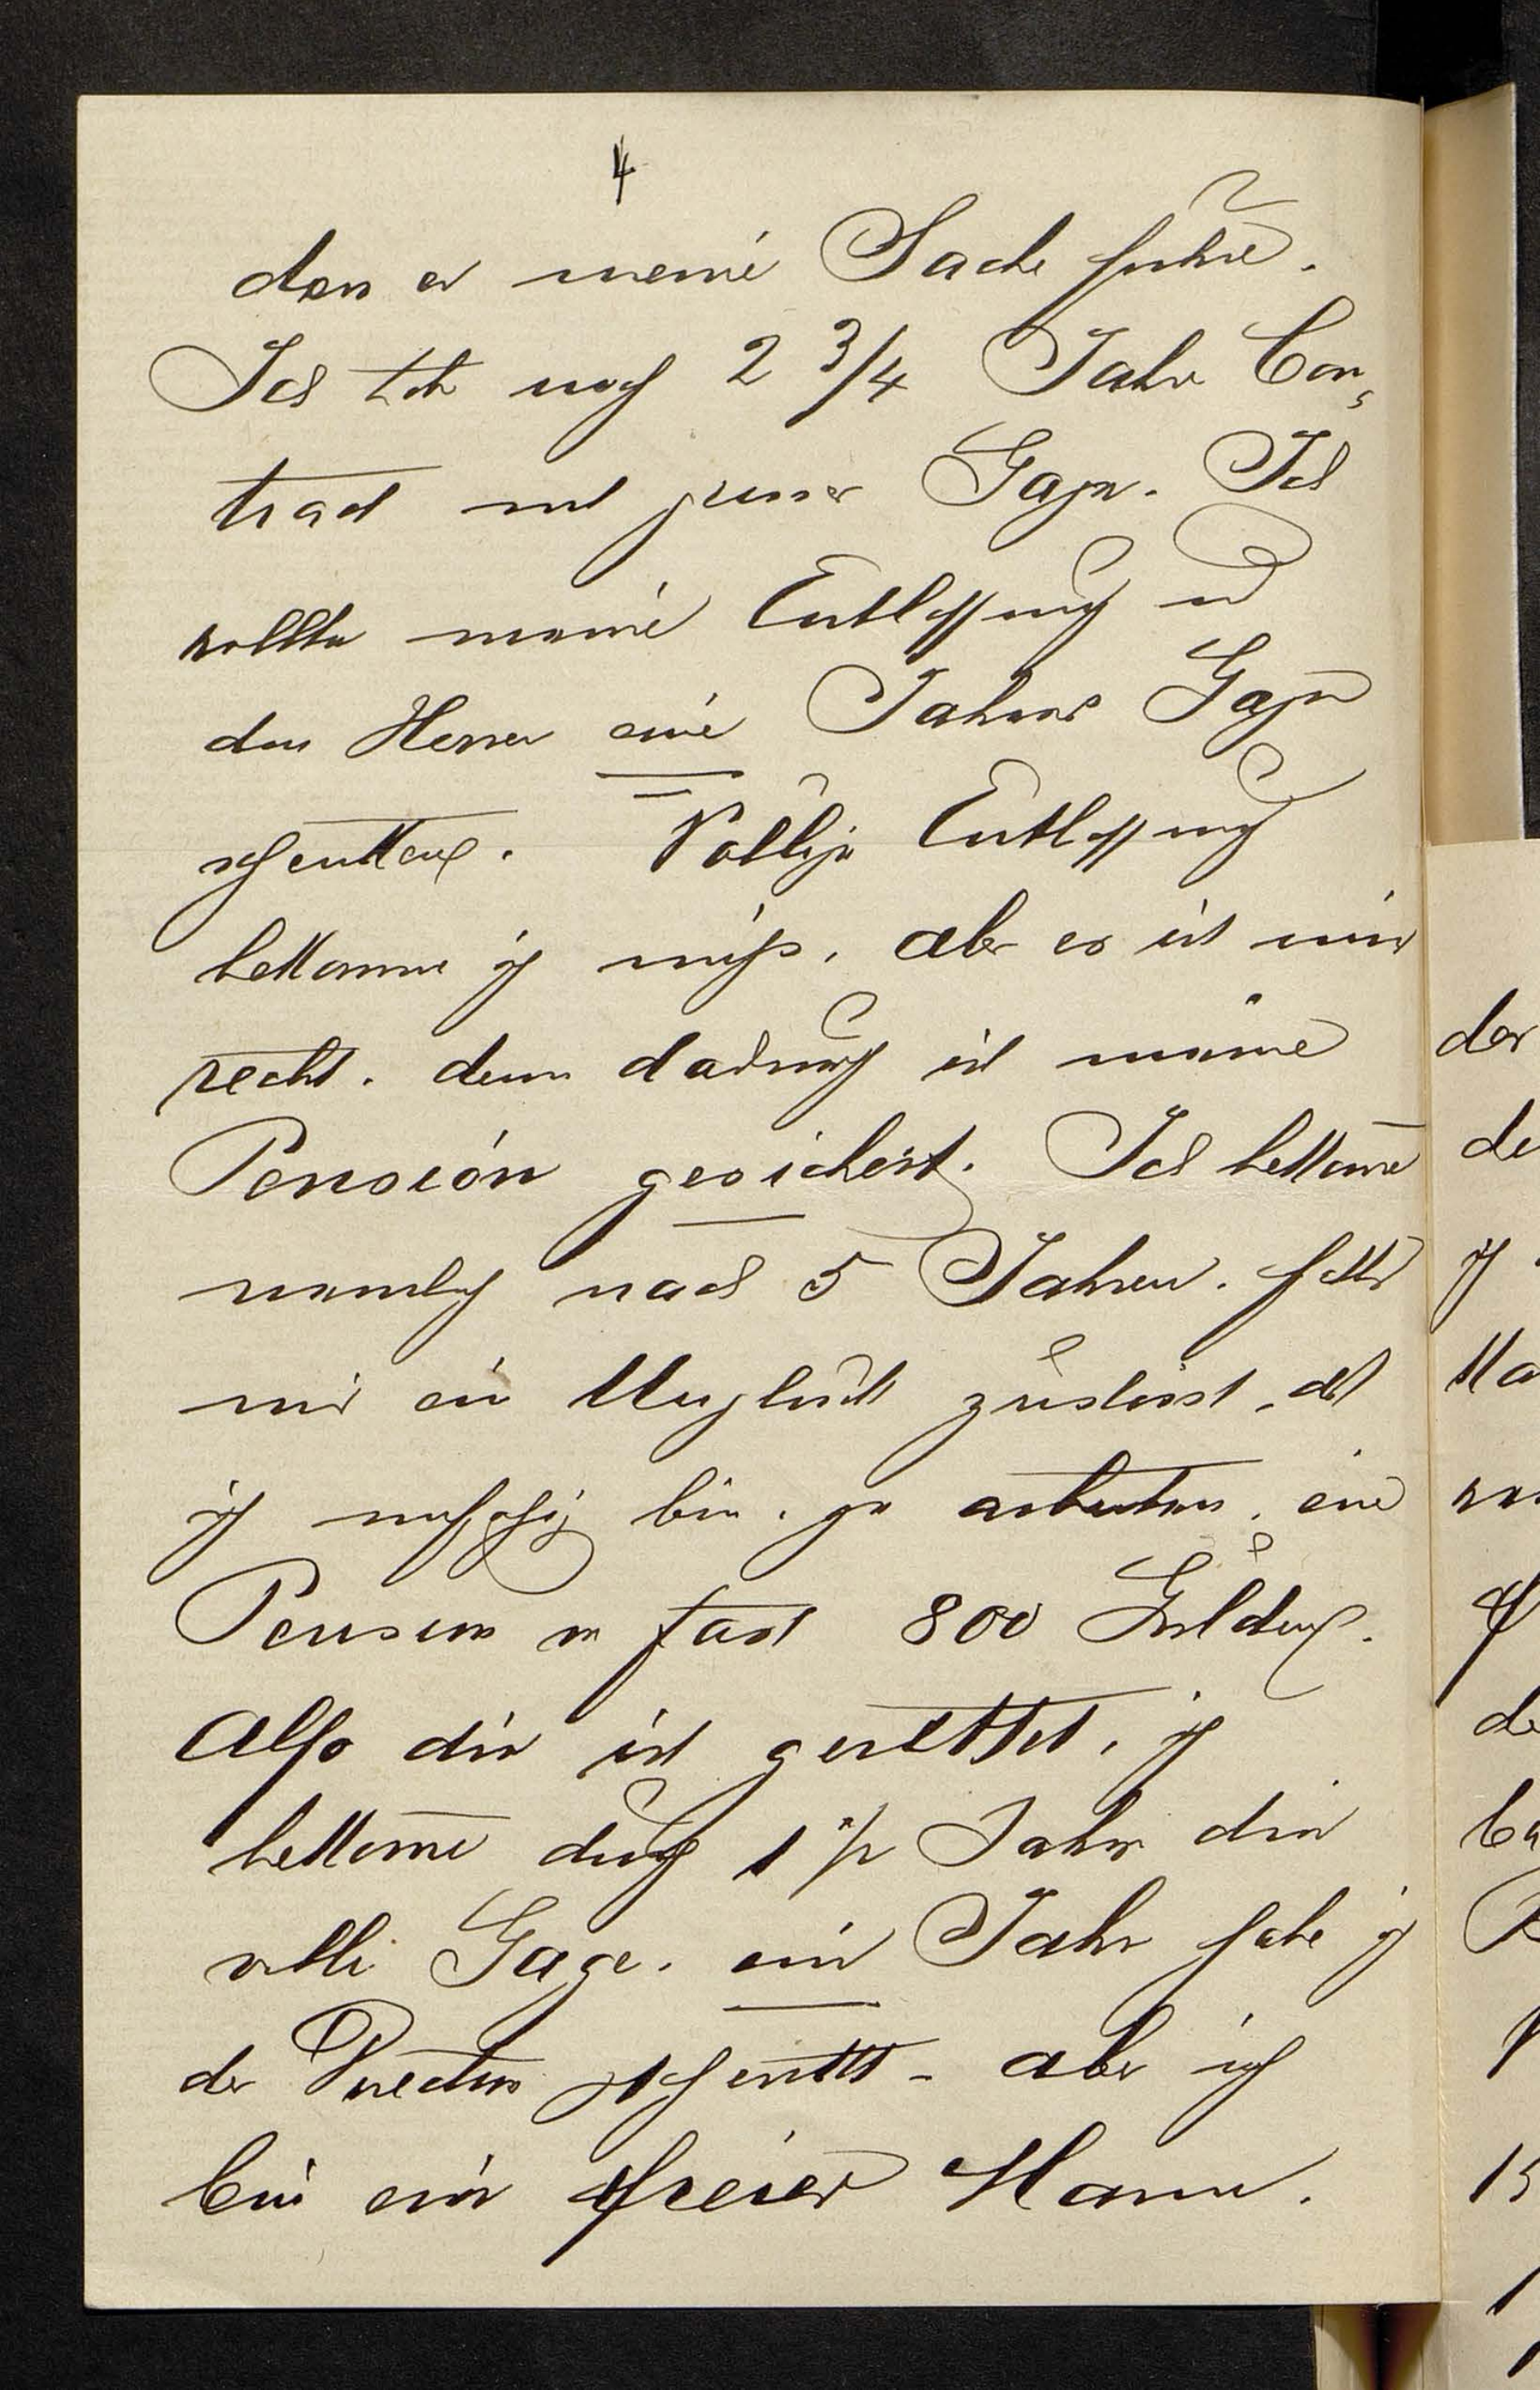 4
dass er meine Sache führe.
Ich habe noch 2 3/4 Jahre Con-
tract mit jener Gage. Ich
wollte meine Entlassung u
den Herren eine Jahres Gage
schenken. Völlige Entlassung
bekomme ich nicht, aber es ist mir
recht. denn dadurch ist meine
Pension gesichert. Ich bekomme
nemlich nach 5 Jahren. falls
mir ein Unglück zustösst, dass
ich unfähig bin, zu arbeiten, eine
Pension von fast 800 Gulden.
Also die ist gerettet, ich
bekomme durch 1 1/2 Jahre die
volle Gage. ein Jahr habe ich
der Direction geschenkt - aber ich
bin ein freier Mann.